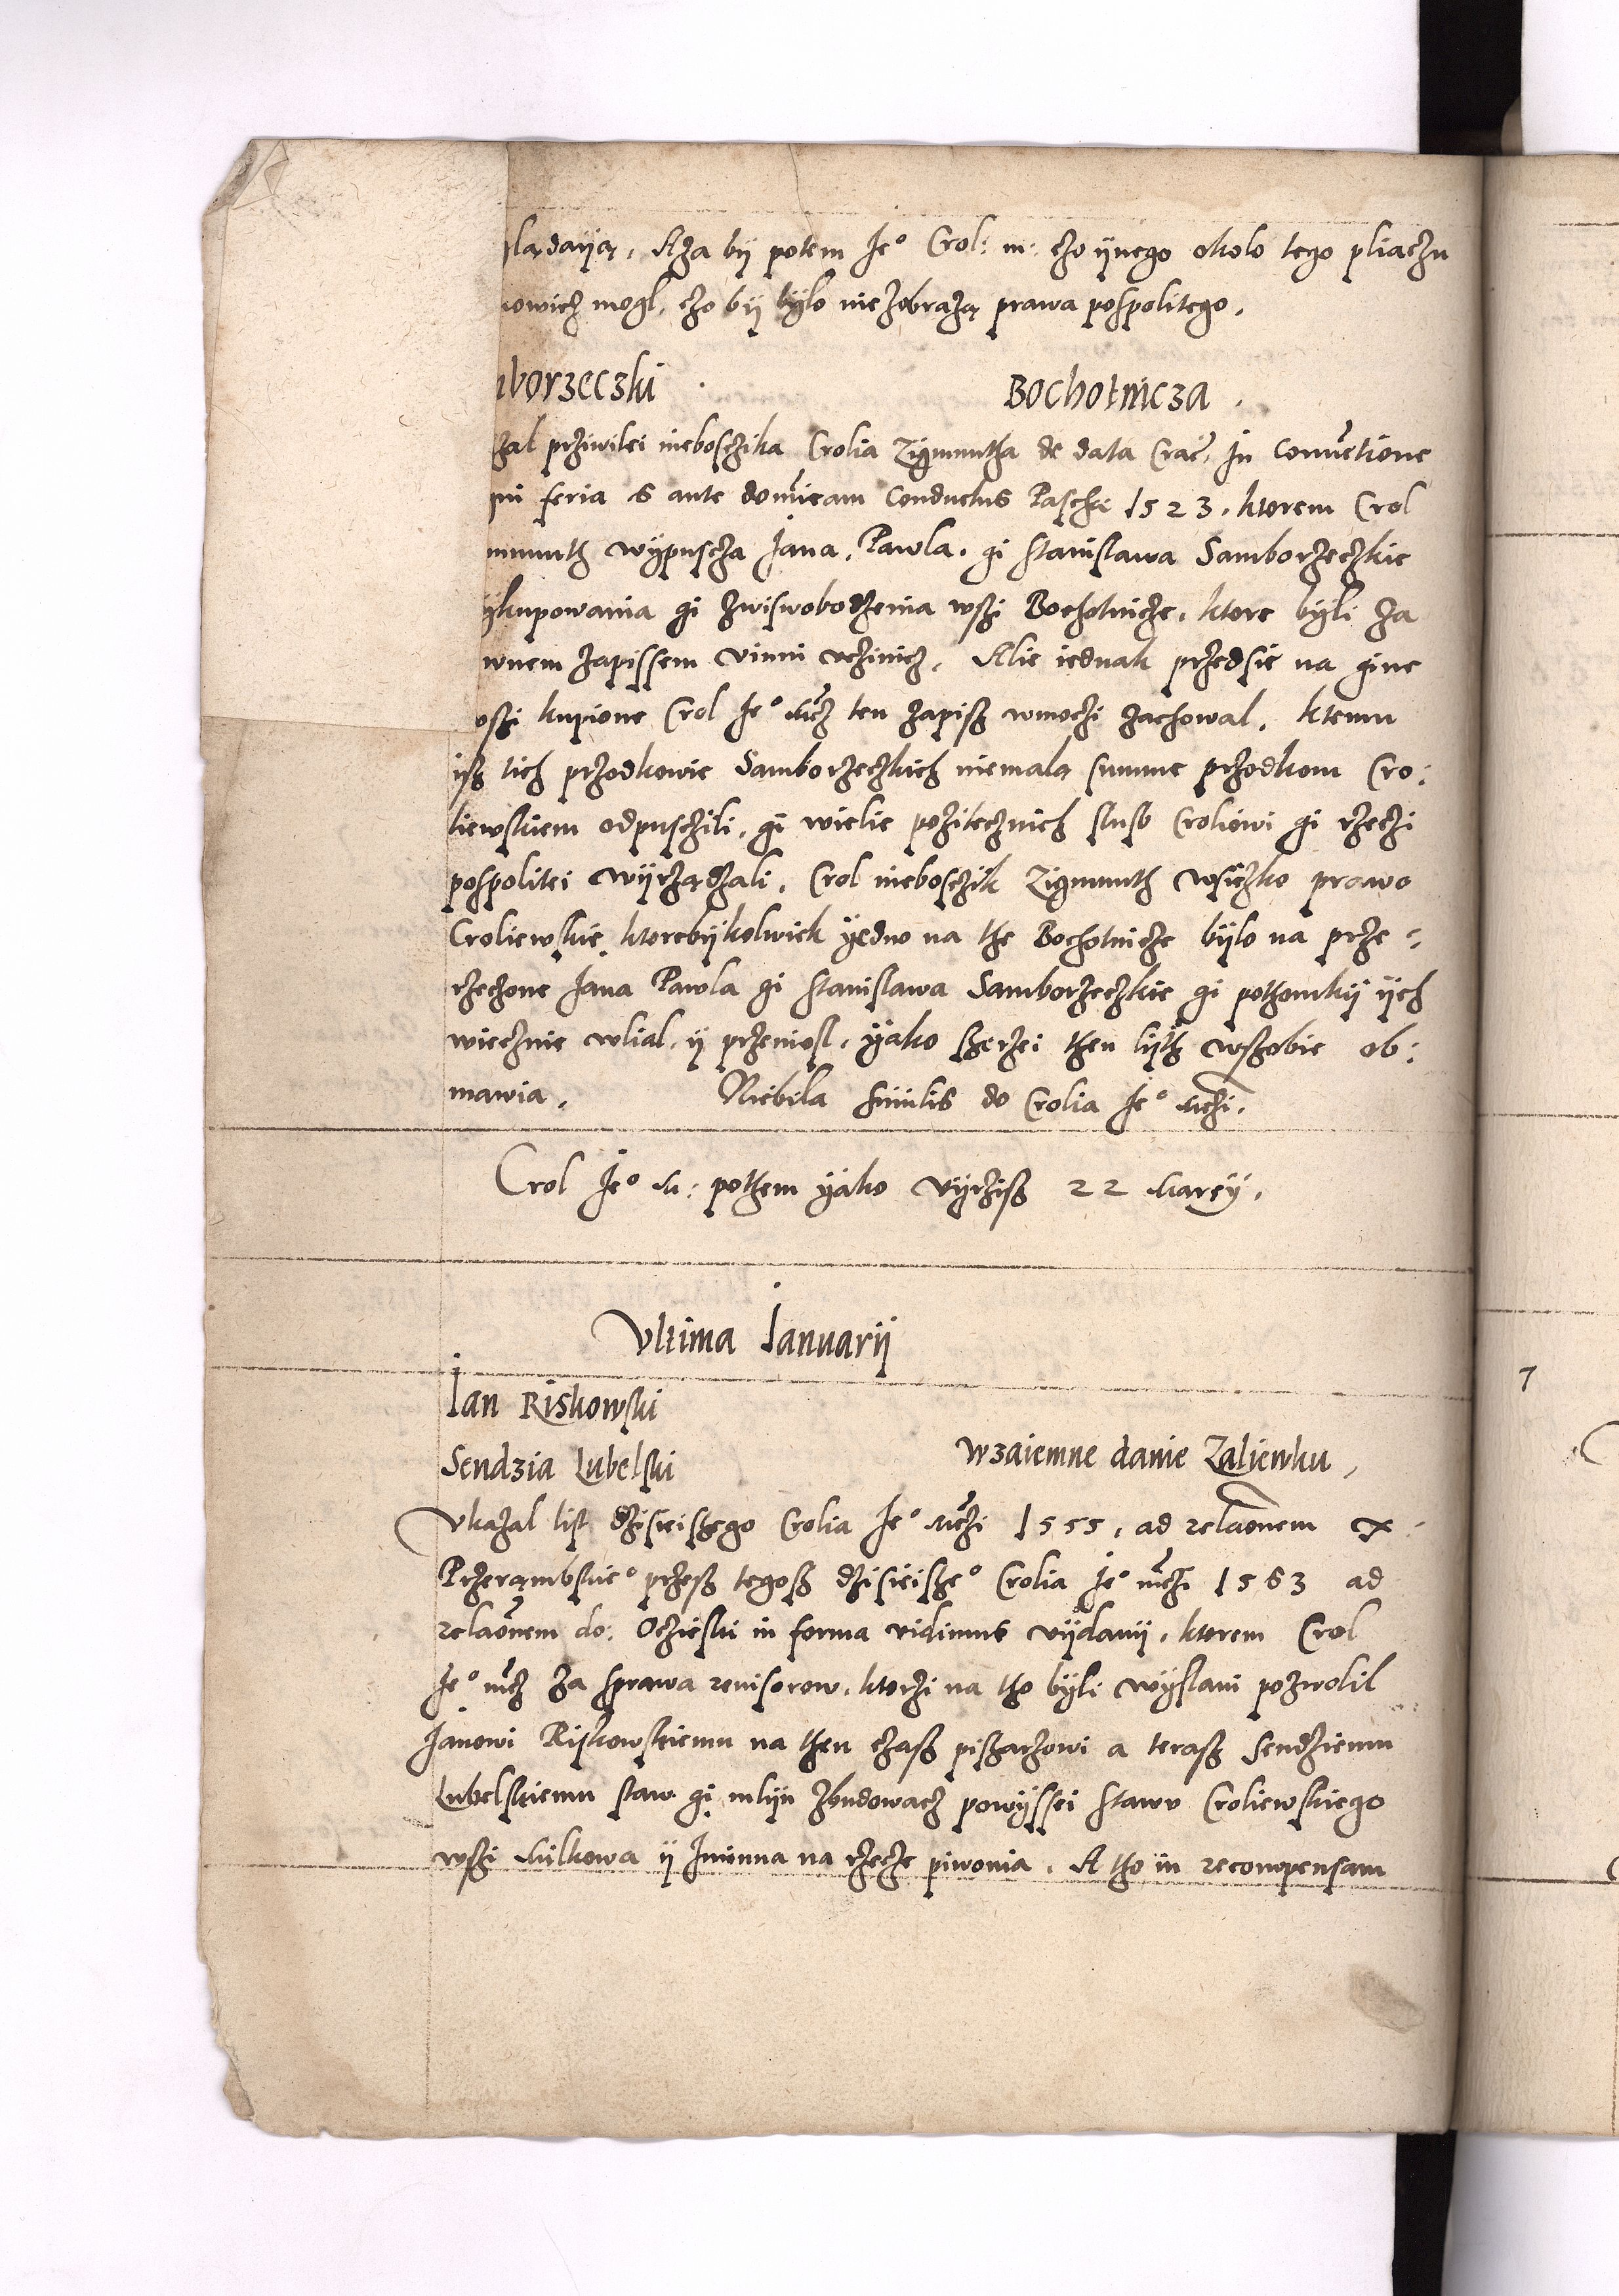 sladaiją, Aza bÿ potem Je° Crol: m: czo ÿnego okolo tego pliaczu
nowicz mogl, czo bÿ bÿlo nie zobrazą prawa pospolitego,
borzeczski Bochotnicza,
zal prziwilei nieboszczika Crolia Zigmuntha de data Crac̄, In Conuētione
feria 6 ante domīcam Conductus Paschę 1523, ktorem Crol
munth wÿpuscza Jana, Pawla, gi Stanislawa Samborzeczkie
ÿkupowania gi zwiswobodzenia wszi Bochotnicze, ktore bÿli za
wnem zapissem vinni vczinicz, Alie iednak przedsie na gine
oszi kupione Crol Je° Mcz ten zapisz wmoczi zachowal, ktemu
isz tich przodkowie Samborzeczkich niemalą summe przodkom Cro:
liewskiem odpusczili, gi wielie pozitecznich slusb Croliowi gi rzeczi
pospolitei wÿrządzali, Crol nieboszczik Zigmunth wsiczko prawo
Croliewskie, ktorebÿkolwiek ÿedno na the Bochotnicze bÿlo na prze-
rzeczone Jana Pawla gi Stanislawa Samborzeczkie gi pothomkÿ ÿch
wiecznie wlial, ÿ przeniosl, ÿako szerzei then lÿsth wszobie ob:
mawia, Niebila similis do Crolia Je° Mczi,
Crol Je° M: pothem ÿako vÿrzisz 22 Marcÿ,
Vltima Januarij
Jan Riskowski
Sendzia Lubelski Wzaiemne danie Zaliewku,
Vkazal list dzisieiszego Crolia Je° Mczi 1555, ad relaōnem
Przerąmbskie° przesz tegosz dzisieisze° Crolia Je° mczi 1563 ad
relaōnem do: Oczieski in forma vidimus vÿdanÿ, ktorem Crol
Je° mcz za sprawa reuisorow, ktorzi na tho bÿli wÿslani pozwolil
Janowi Riskowskiemu na then czasz piszarzowi a terasz Sendziemu
Lubelskiemu staw gi mlÿn zbudowacz powÿssei stawu Croliewskiego
wszi Milkowa ÿ Jminna na rzecze piwonia, A tho in recompensam
7